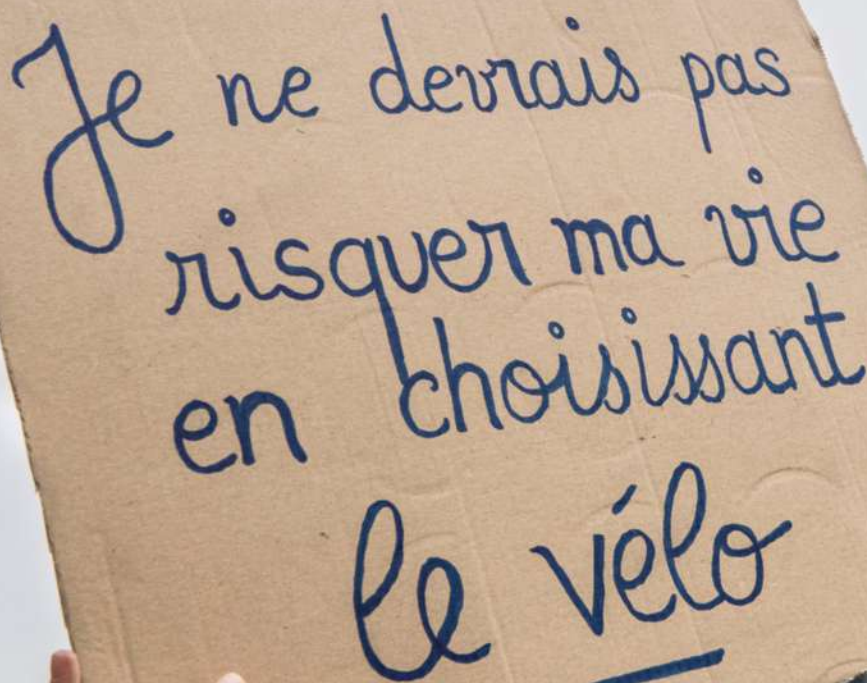 Je ne devrais pas
risquer ma vie
en choisissant
le vélo